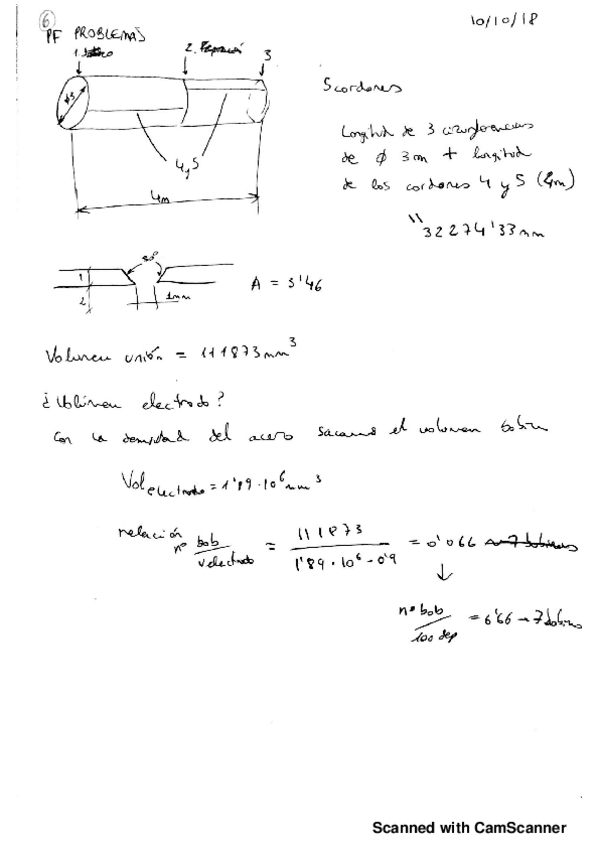 6
10/10/18
PF PROBLEMAS
2.
3
φ3
4 y 5
4m
5 cordones
Longitud de 3 circunferencias
de φ 3m + longitud
de los cordones 4 y 5 (4m)
32274'33mm
1
2
1mm
A = 3'46
Volumen unión = 111873mm³
¿Volumen electrodo?
Con la densidad del acero sacamos el volumen bobina
Vol electrodo = 1'89·10⁶mm³
relación nº bob / v electrodo = 111873 / 1'89·10⁶·0'9 = 0'066
nº bob / 100 dep = 6'66 → 7 bobinas
Scanned with CamScanner